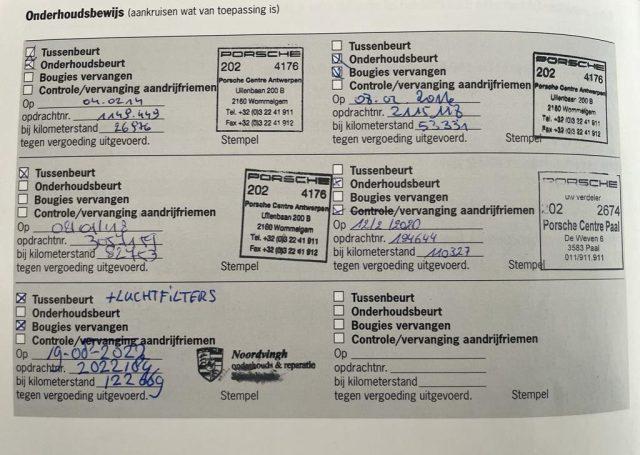 Onderhoudsbewijs (aankruisen wat van toepassing is)
Tussenbeurt
Onderhoudsbeurt
Bougies vervangen
Controle/vervanging aandrijfriemen
Op 04.02.14
opdrachtnr. 1149.449
bij kilometerstand 26976
tegen vergoeding uitgevoerd.
Stempel
PORSCHE
202 4176
Porsche Centre Antwerpen
Uilenbaan 200 B
2160 Wommelgem
Tel. +32 (0)3 22 41 911
Fax +32 (0)3 22 41 912
Tussenbeurt
Onderhoudsbeurt
Bougies vervangen
Controle/vervanging aandrijfriemen
Op 2016
opdrachtnr.
bij kilometerstand 53331
tegen vergoeding uitgevoerd.
Stempel
PORSCHE
202 4176
Porsche Centre Antwerpen
Uilenbaan 200 B
2160 Wommelgem
Tel. +32 (0)3 22 41 911
Fax +32 (0)3 22 41 912
Tussenbeurt
Onderhoudsbeurt
Bougies vervangen
Controle/vervanging aandrijfriemen
Op
opdrachtnr.
bij kilometerstand 82453
tegen vergoeding uitgevoerd.
Stempel
PORSCHE
202 4176
Porsche Centre Antwerpen
Uilenbaan 200 B
2160 Wommelgem
Tel. +32 (0)3 22 41 911
Fax +32 (0)3 22 41 912
Tussenbeurt
Onderhoudsbeurt
Bougies vervangen
Controle/vervanging aandrijfriemen
Op 12/2/2020
opdrachtnr. 194644
bij kilometerstand 110327
tegen vergoeding uitgevoerd.
Stempel
PORSCHE
uw verdeler
202 2674
Porsche Centre Paal
De Weven 6
3583 Paal
011/911.911
Tussenbeurt +LUCHTFILTERS
Onderhoudsbeurt
Bougies vervangen
Controle/vervanging aandrijfriemen
Op 2022
opdrachtnr.
bij kilometerstand
tegen vergoeding uitgevoerd.
Stempel
Noordvingh
onderhouds & reparatie
Tussenbeurt
Onderhoudsbeurt
Bougies vervangen
Controle/vervanging aandrijfriemen
Op
opdrachtnr.
bij kilometerstand
tegen vergoeding uitgevoerd.
Stempel